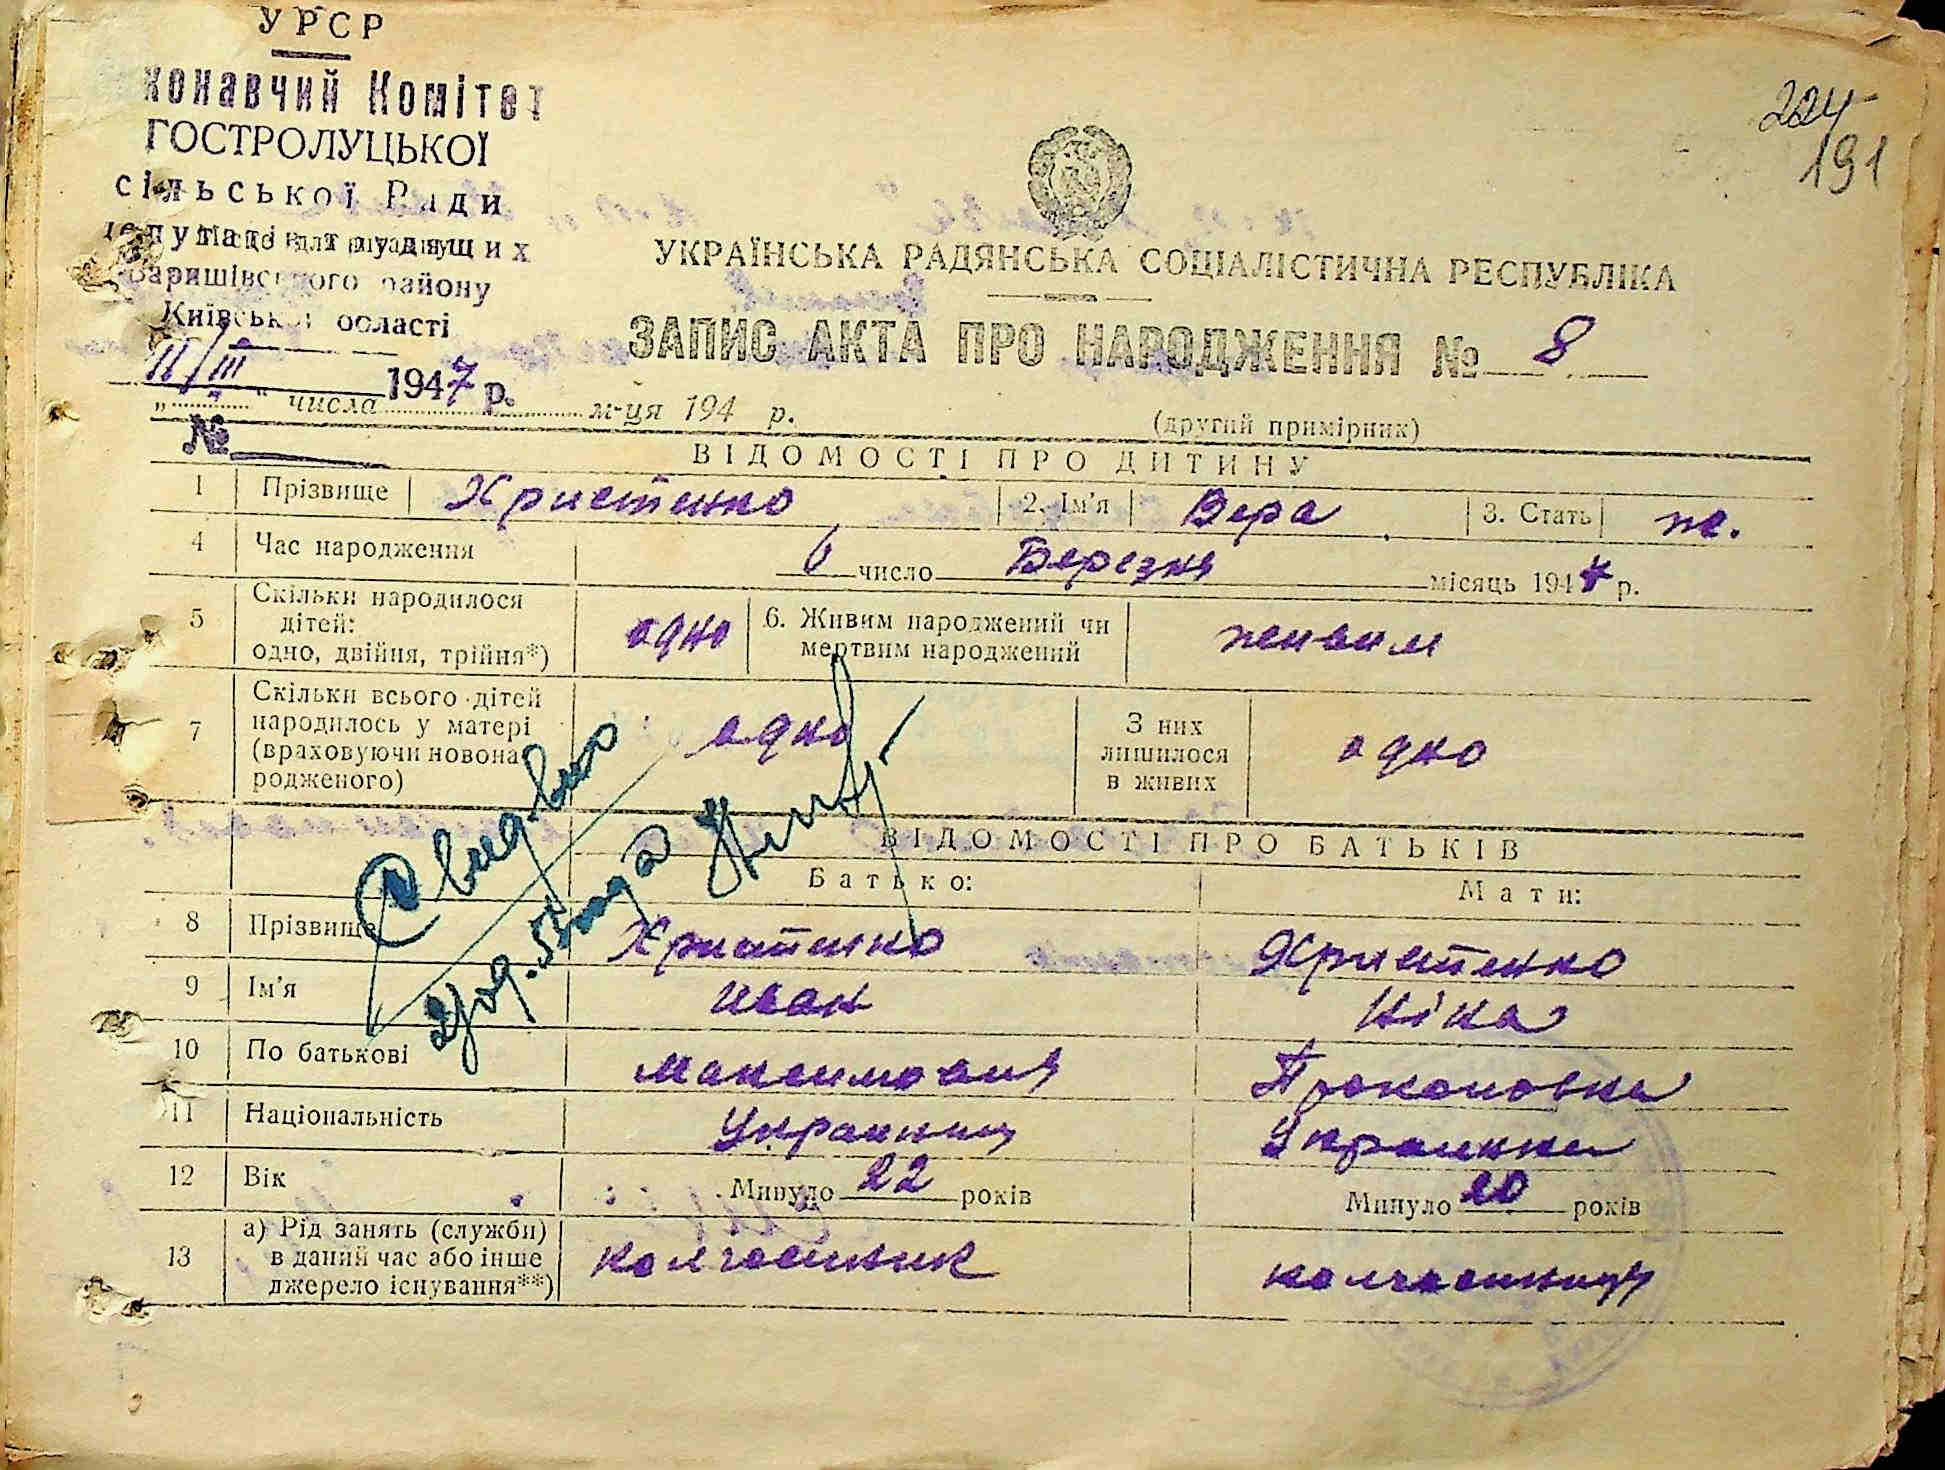 УРСР
конавчий Комітет
ГОСТРОЛУЦЬКОЇ
сільської Ради
депутатів трудящих
Баришівського району
Київської області
11/III 1947 р.
№
224
191
УКРАЇНСЬКА РАДЯНСЬКА СОЦІАЛІСТИЧНА РЕСПУБЛІКА
ЗАПИС АКТА ПРО НАРОДЖЕННЯ № 8
„ “ числа м-ця 194 р.
(другий примірник)
ВІДОМОСТІ ПРО ДИТИНУ
1 Прізвище Христенко 2. Ім'я Вера 3. Стать ж.
4 Час народження 6 число Березня місяць 1947 р.
5 Скільки народилося дітей: одно, двійня, трійня*) одно 6. Живим народжений чи мертвим народжений живим
7 Скільки всього дітей народилось у матері (враховуючи новона родженого) одно З них лишилося в живих одно
ВІДОМОСТІ ПРО БАТЬКІВ
Батько: Мати:
8 Прізвище Христенко Христенко
9 Ім'я Иван Ніна
10 По батькові Максимович Прокоповна
11 Національність Украинец Украинка
12 Вік Минуло 22 років Минуло 20 років
13 а) Рід занять (служби) в даний час або інше джерело існування**) колгоспник колгоспниця